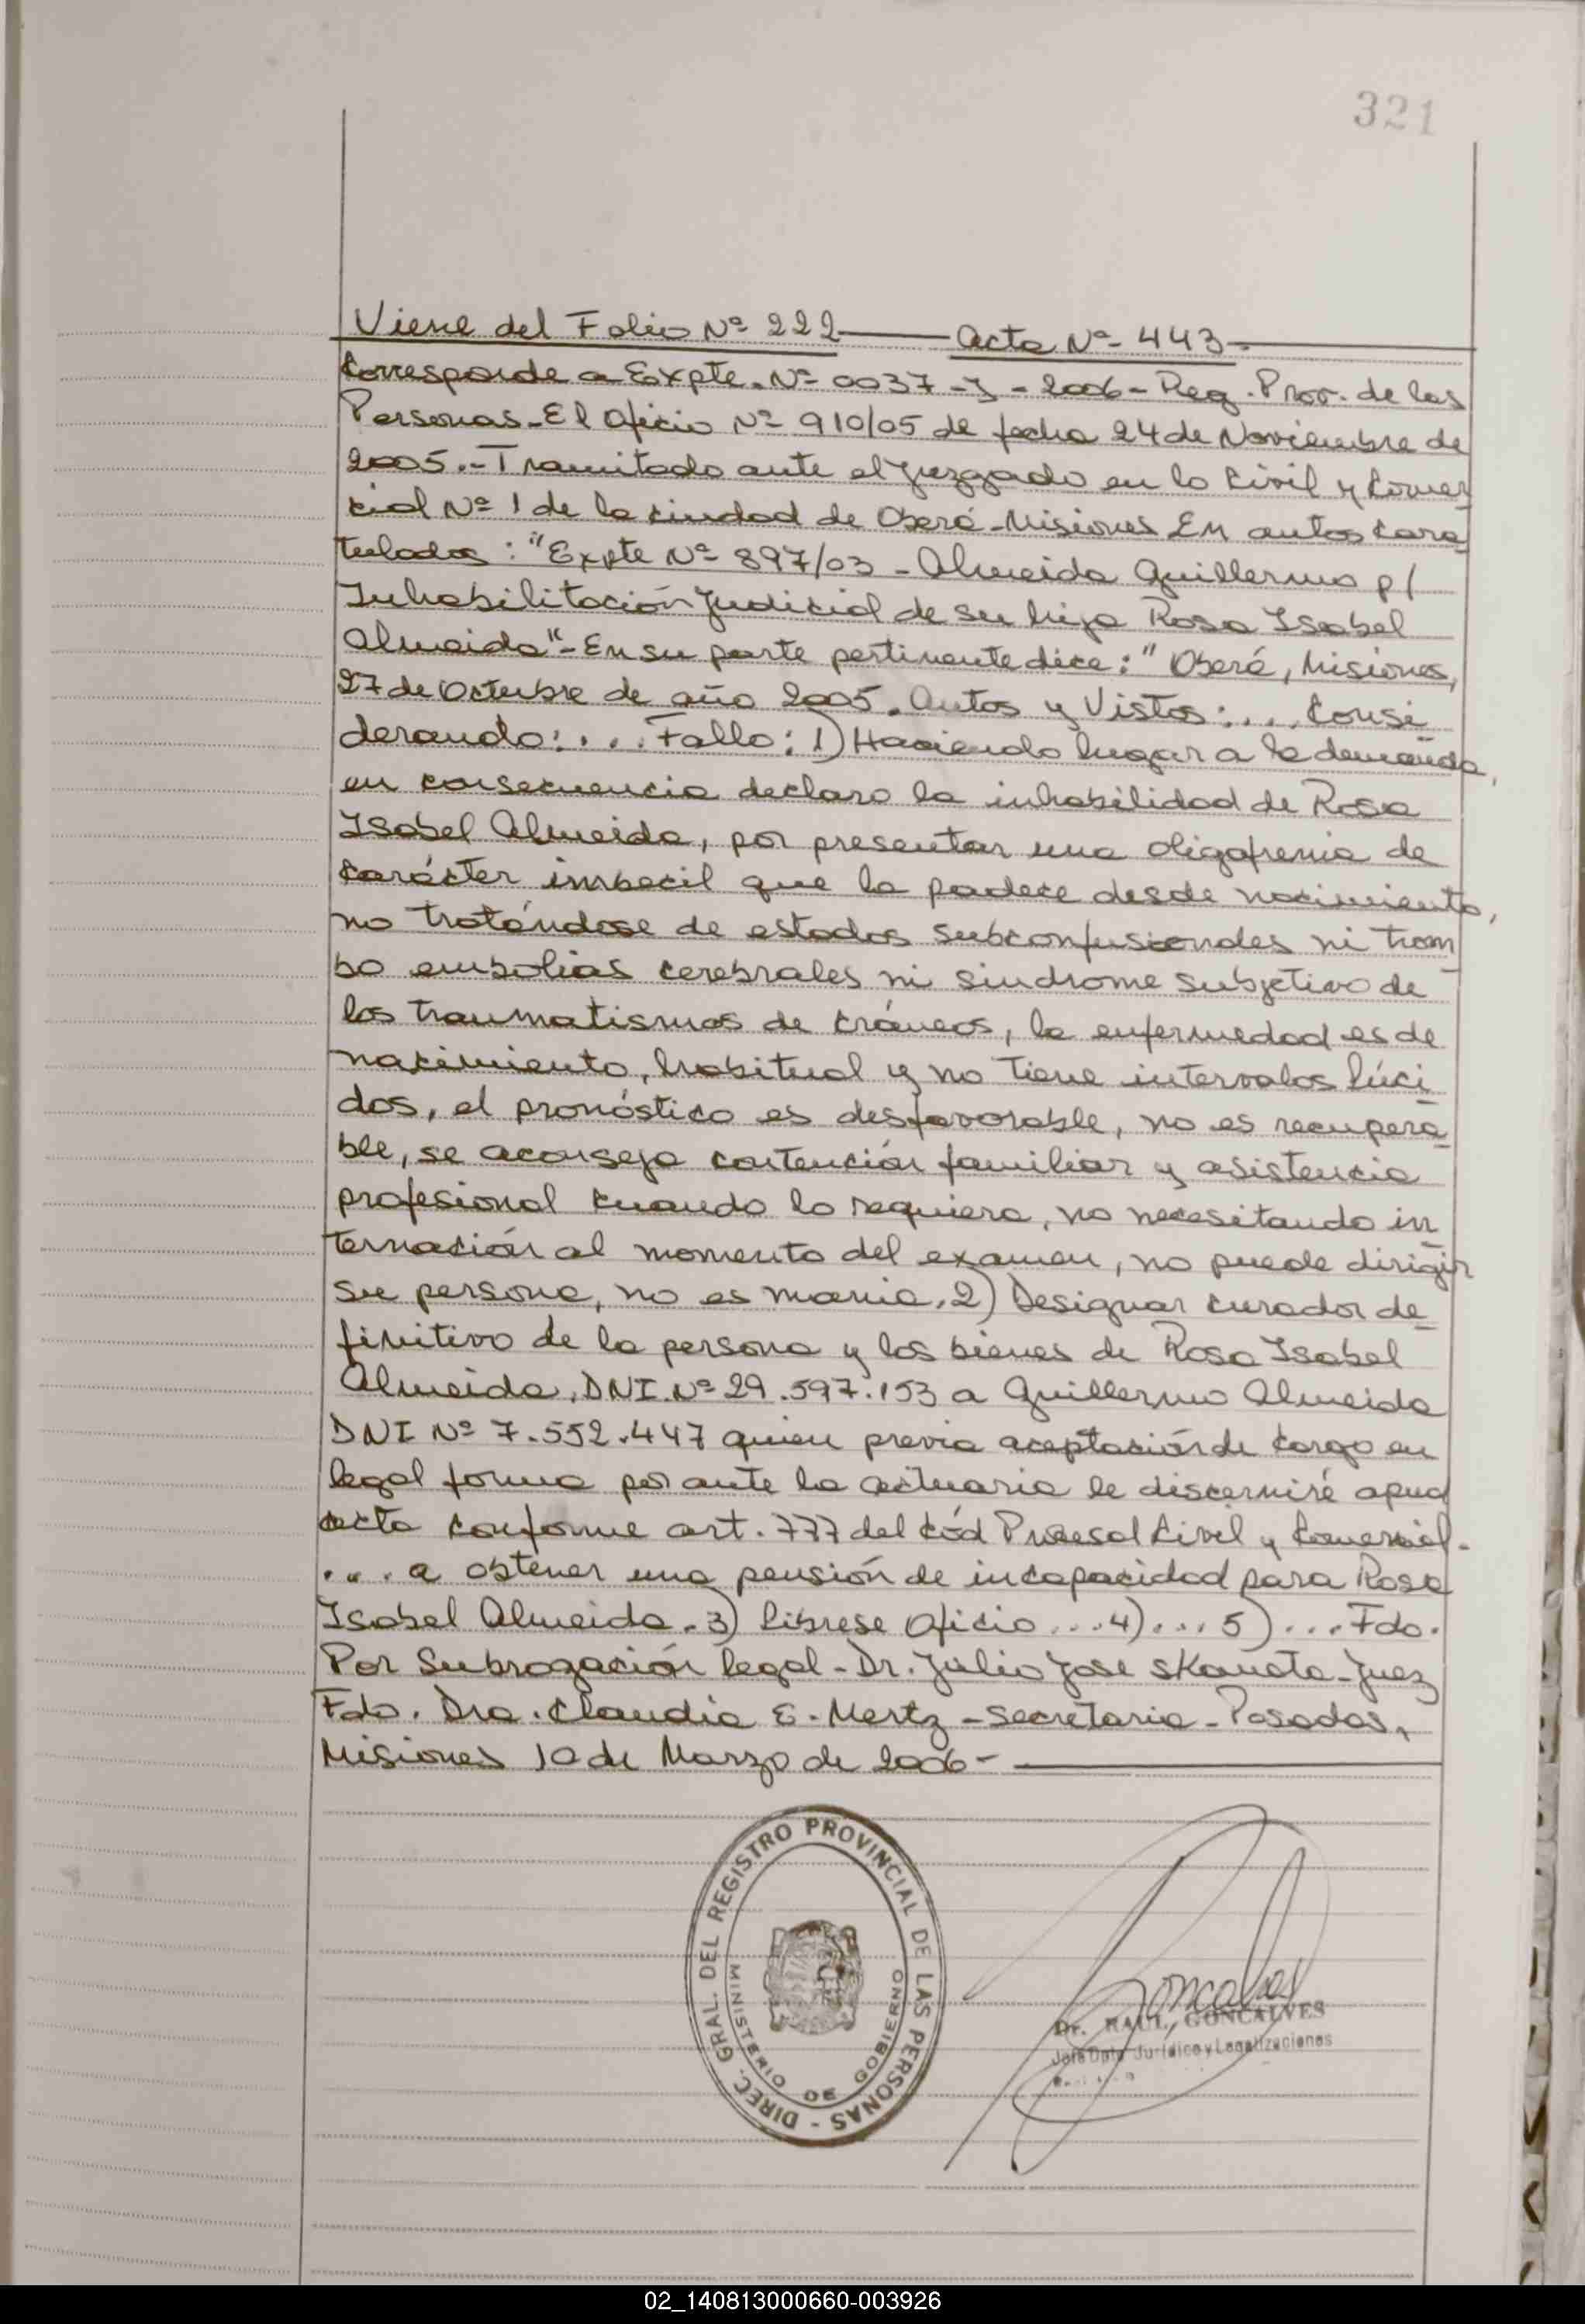 321
Viene del Folio Nº 222 — Acta Nº 443-
Corresponde a Expte. Nº 0037-J-2006- Reg. Prov. de las
Personas-El oficio Nº 910/05 de fecha 24 de Noviembre de
2005.-Tramitado ante el Juzgado en lo Civil y Comer
cial Nº 1 de la ciudad de Oberá-Misiones En autos cara
tulados: "Expte Nº 897/03 - Almeida Guillermo p/
Inhabilitación Judicial de su hija Rosa Isabel
Almeida"-En su parte pertinente dice:" Oberá, Misiones,
27 de Octubre de año 2005. Autos y Vistos:... Consi
derando:... Fallo: 1) Haciendo lugar a la demanda,
en consecuencia declaro la inhabilidad de Rosa
Isabel Almeida, por presentar una oligofrenia de
carácter imbecil que la padece desde nacimiento,
no tratándose de estados subconfusionales ni trom
bo embolias cerebrales ni sindrome subjetivo de
los traumatismos de cráneos, la enfermedad es de
nacimiento, habitual y no tiene intervalos lúci
dos, el pronóstico es desfavorable, no es recupera
ble, se aconseja contención familiar y asistencia
profesional cuando lo requiera, no necesitando in
ternación al momento del examen, no puede dirigir
su persona, no es mania. 2) Designar curador de
finitivo de la persona y los bienes de Rosa Isabel
Almeida, DNI. Nº 29.597.153 a Guillermo Almeida
DNI Nº 7.552.447 quien previa aceptación de cargo en
legal forma por ante la actuaria le discerniré apud
acta conforme art. 777 del Cód Procesal Civil y Comercial.
... a obtener una pensión de incapacidad para Rosa
Isabel Almeida. 3) Librese Oficio ... 4)... 5)... Fdo.
Por Subrogación legal-Dr. Julio Jose Skanata-Juez
Fdo. Dra. Claudia E. Mertz-Secretaria-Posadas,
Misiones 10 de Marzo de 2006-
DIREC. GRAL. DEL REGISTRO PROVINCIAL DE LAS PERSONAS -
MINISTERIO DE GOBIERNO
Goncalves
Dr. RAUL GONCALVES
Jefe Dpto Jurídico y Legalizaciones
02_140813000660-003926